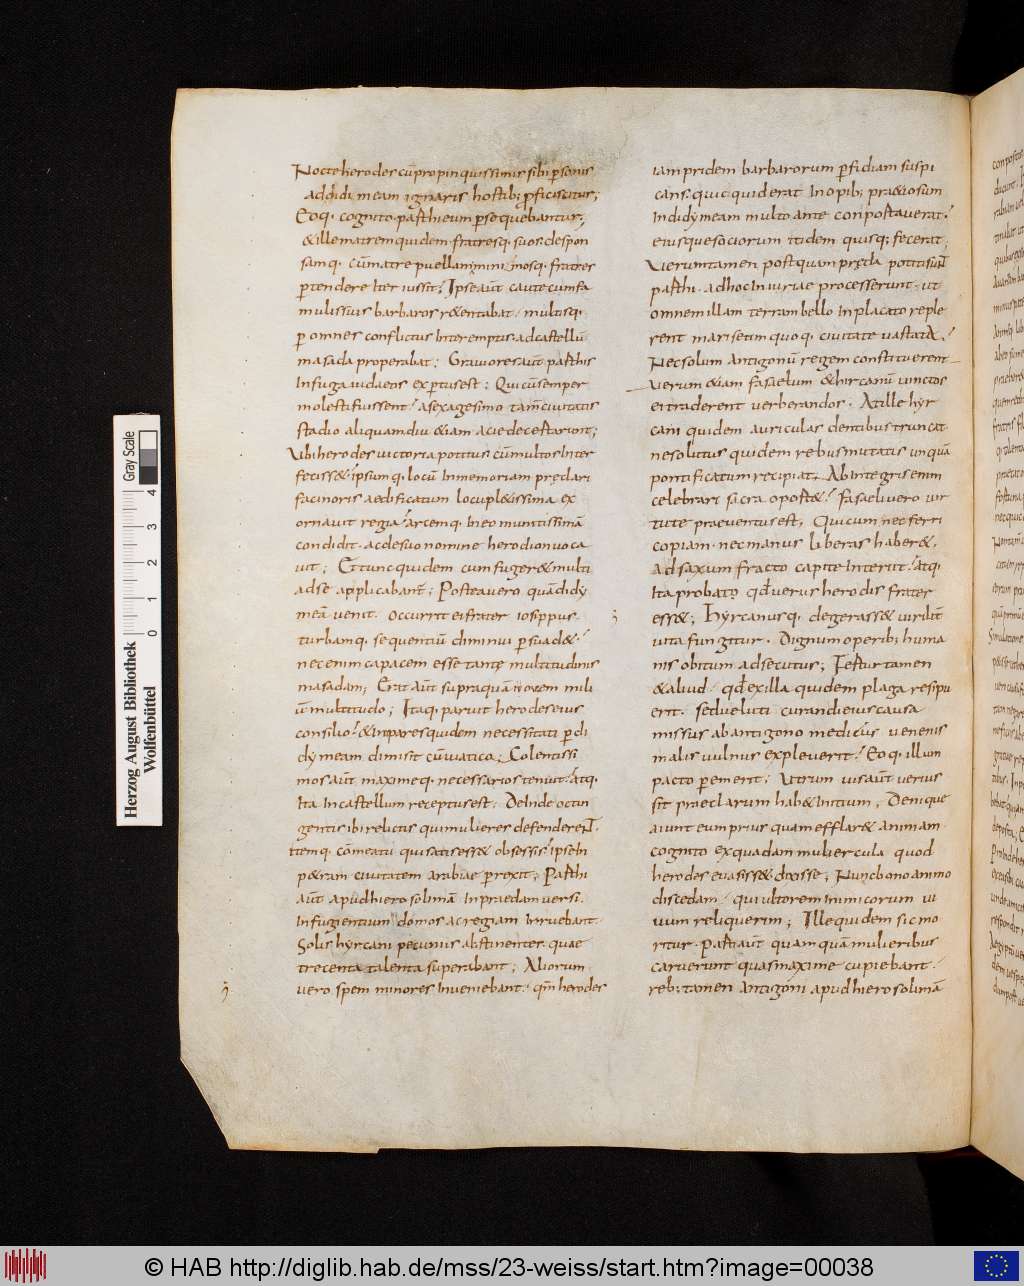 Nocte herodes cū propinquissimis sibi ꝑsonis
ad didimeam ignaris hostib; ꝓficiscitur;
Eoq· cognito parthi eum ꝑsequebantur;
& ille matrem quidem fratresq· suos despon
samq· cū matre puellam
ꝑtendere iter iussit; Ipse aūt caute cum fa
mulis suis barbaros r&entabat· multisq·
ꝑ omnes conflictus interemptis ad castellū
masada properabat; Grauiores aūt parthis
in fuga iudaeos exꝑtus est; Qui cū semper
molesti fuissent· a sexagesimo tam̄ ciuitatis
stadio aliquamdiu &iam acie decertarunt;
Ubi herodes uictoria potitus cū multos inter
feciss& ipsumq· locū in memoriam pręclari
facinoris aedificatum locupl&issima ex
ornauit regia· arcemq· in eo munitissimā
condidit· ac de suo nomine herodion uoca
uit; Et tunc quidem cum fuger& multi
ad se applicabant; Postea uero quā didy
meā uenit· occurrit ei frater iosippus·
turbamq· sequentiū diminui ꝑsuad&·
nec enim capacem esse tantę multitudinis
masadam; Erat aūt supra quam nouem mili
ū multitudo; Itaq· paruit herodes eius
consilio· & impares quidem necessitati ꝑ di
dymeam dimisit cū uiatico; Colentissi
mos aūt maximeq· necessarios tenuit· atq·
ita in castellum receptus est; Deinde octin
gentis ibi relictis qui mulieres defenderent·
itemq· cōmeatū qui satis ess& obsessis· ipse in
p&ram ciuitatem arabiae ꝑrexit; Parthi
aūt apud hierosolimā in praedam uersi·
in fugientium domos ac regiam inruebant·
Solis hyrcani pecuniis abstinentes quae
trecenta talenta superabant; Aliorum
uero spem minores inueniebant· qm̄ herodes
iam pridem barbarorum ꝑfidiam suspi
cans· quicquid erat in opib; pr&iosum
in didymeam multo ante conportauerat·
eiusque sociorum itidem quisq; fecerat;
Uerum tamen postquam pręda potiti sunt
parthi· ad hoc iniuriae processerunt· ut
omnem illam terram bello inplacato reple
rent marisenim quoq· ciuitate uastata·
Nec solum antigonū regem constituerent
uerum &iam fasaelum & hircanū uinctos
ei traderent uerberandos· At ille hyr
cani quidem auriculas dentibus truncat·
ne solutus quidem rebus mutatis unquā
pontificatum recipiat· Ab integris enim
celebrari sacra oport&· Fasaeli uero uir
tute praeuentus est· Qui cum nec ferri
copiam· nec manus liberas haber&·
ad saxum fracto capite interiit· atq·
ita probato qđ uerus herodis frater
ess&; Hyrcanusq· degerass& uirilit̄
uita fungitur· Dignum operib; huma
nis obitum adsecutus; Fertur tamen
& aliud· qđ ex illa quidem plaga resipu
erit· sed ueluti curandi eius causa
missus ab antigono medicus uenenis
malis uulnus expleuerit· Eoq· illum
pacto ꝑemerit· Utrum uis aūt uerius
sit praeclarum hab& initium; Denique
aiunt eum prius quam efflar& animam
cognito ex quadam muliercula quod
herodes euasiss& dixisse; Nunc bono animo
discedam· qui ultorem inimicorum ui
uum reliquerim; Ille quidem sic mo
ritur· Parti aūt quamquā mulieribus
caruerunt quas maxime cupiebant·
reb; tamen antigoni apud hierosolimā
Herzog August Bibliothek
Wolfenbüttel
Gray Scale
0 1 2 3 4
© HAB http://diglib.hab.de/mss/23-weiss/start.htm?image=00038